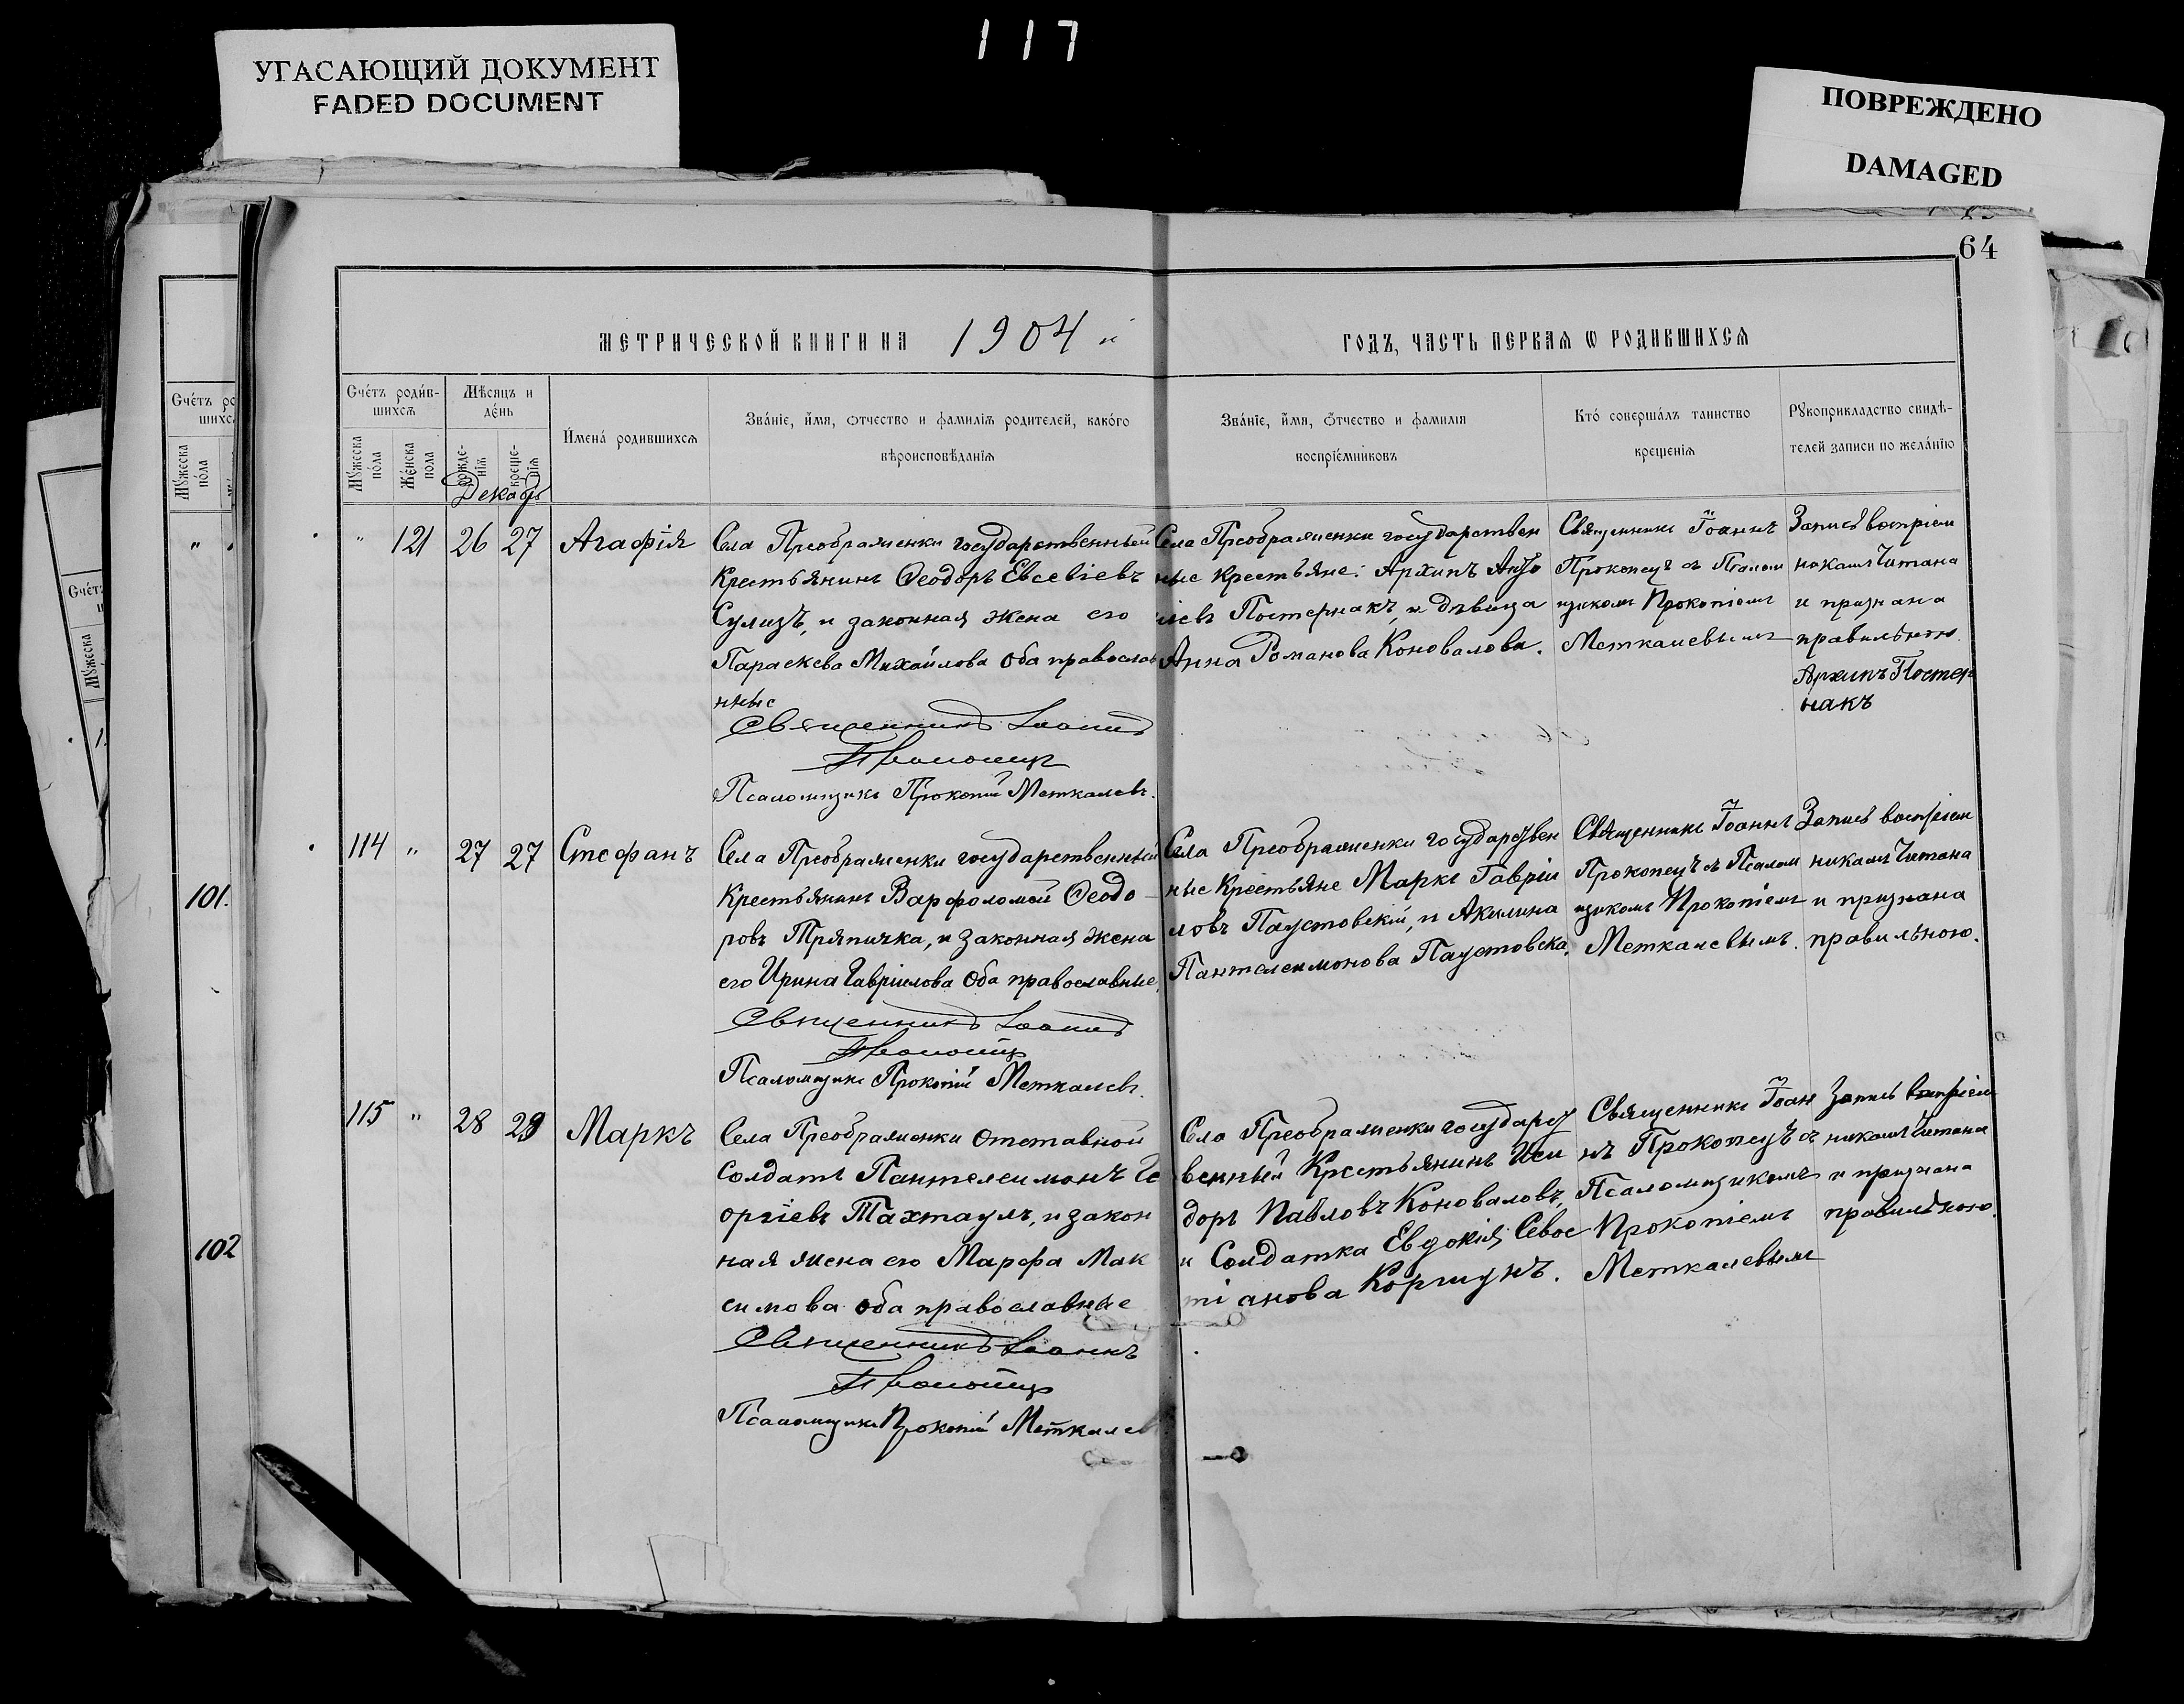 117
УГАСАЮЩИЙ ДОКУМЕНТ
FADED DOCUMENT
ПОВРЕЖДЕНО
DAMAGED
64
МЕТРИЧЕСКОЙ КНИГИ НА 1904 й
ГОДЪ, ЧАСТЬ ПЕРВАЯ Ѡ РОДИВШИХСѦ
Счéтъ роди́в-
шихсѧ
Мꙋ́жеска
по́ла
Же́нска
пола
Мѣсяцъ и
де́нь
рожде-
нїѧ
креще-
нїѧ
Декабь
И́мена́ родившихсѧ
Зва́нїе, и́мя, ѻтчество и фамилїѧ родителей, како́го
вѣроисповѣданїѧ
Зва́нїе, и́мя, ѻ́тчество и фамилїя
воспрїе́мниковъ
Кто́ соверша́лъ таинство
крещенїѧ
Рꙋкоприкладство свидѣ-
телей записи по жела́нїю
Счéтъ ро
шихсѧ
Мꙋ́жеска
по́ла
"
101.
102
" 121 26 27 Агафія
Села Преображенки государственный
Крестьянинъ Ѳеодоръ Евсевіевъ
Сулизъ, и законная жена его
Параскева Михайлова оба православ
ные
Священникъ Іоаннъ
Прокопецъ
Псаломщикъ Прокопій Меткалевъ.
Села Преображенки государствен
ные крестьяне: Архипъ
Постернакъ, и дѣвица
Анна Романова Коновалова.
Священникъ Іоаннъ
Прокопецъ съ Псалом
щикомъ Прокопіемъ
Меткалевымъ
Запись воспріем
никамъ читана
и признана
правильною
Архипъ Постер
накъ
114 " 27 27 Стефанъ
Села Преображенки государственный
Крестьянинъ Варфоломей Ѳеодо-
ровъ Тряпичка, и законная жена
его Ирина Гавріилова оба православные.
Священникъ Іоаннъ
Прокопецъ
Псаломщикъ Прокопій Меткалевъ.
Села Преображенки государствен
ные Крестьяне Маркъ Гавріи
ловъ Паустовскій, и Акилина
Пантелеимонова Паустовска.
Священникъ Іоаннъ
Прокопецъ съ Псалом
щикомъ Прокопіемъ
Меткалевымъ.
Запись воспріем
никамъ читана
и признана
правильною.
115 " 28 29 Маркъ
Села Преображенки Отставной
Солдатъ Пантелеимонъ Ге
оргіевъ Тахтаулъ, и закон
ная жена его Марфа Мак
симова оба православные
Священникъ Іоаннъ
Прокопецъ
Псаломщикъ Прокопій Меткалев
Села Преображенки государст
венный Крестьянинъ Иси
доръ Павловъ Коноваловъ,
и Солдатка Евдокія Севос
тіанова Коршунъ.
Священникъ Іоан
нъ Прокопецъ съ
Псаломщикомъ
Прокопіемъ
Меткалевымъ
Запись воспріем
никамъ читана
и признана
правильною.